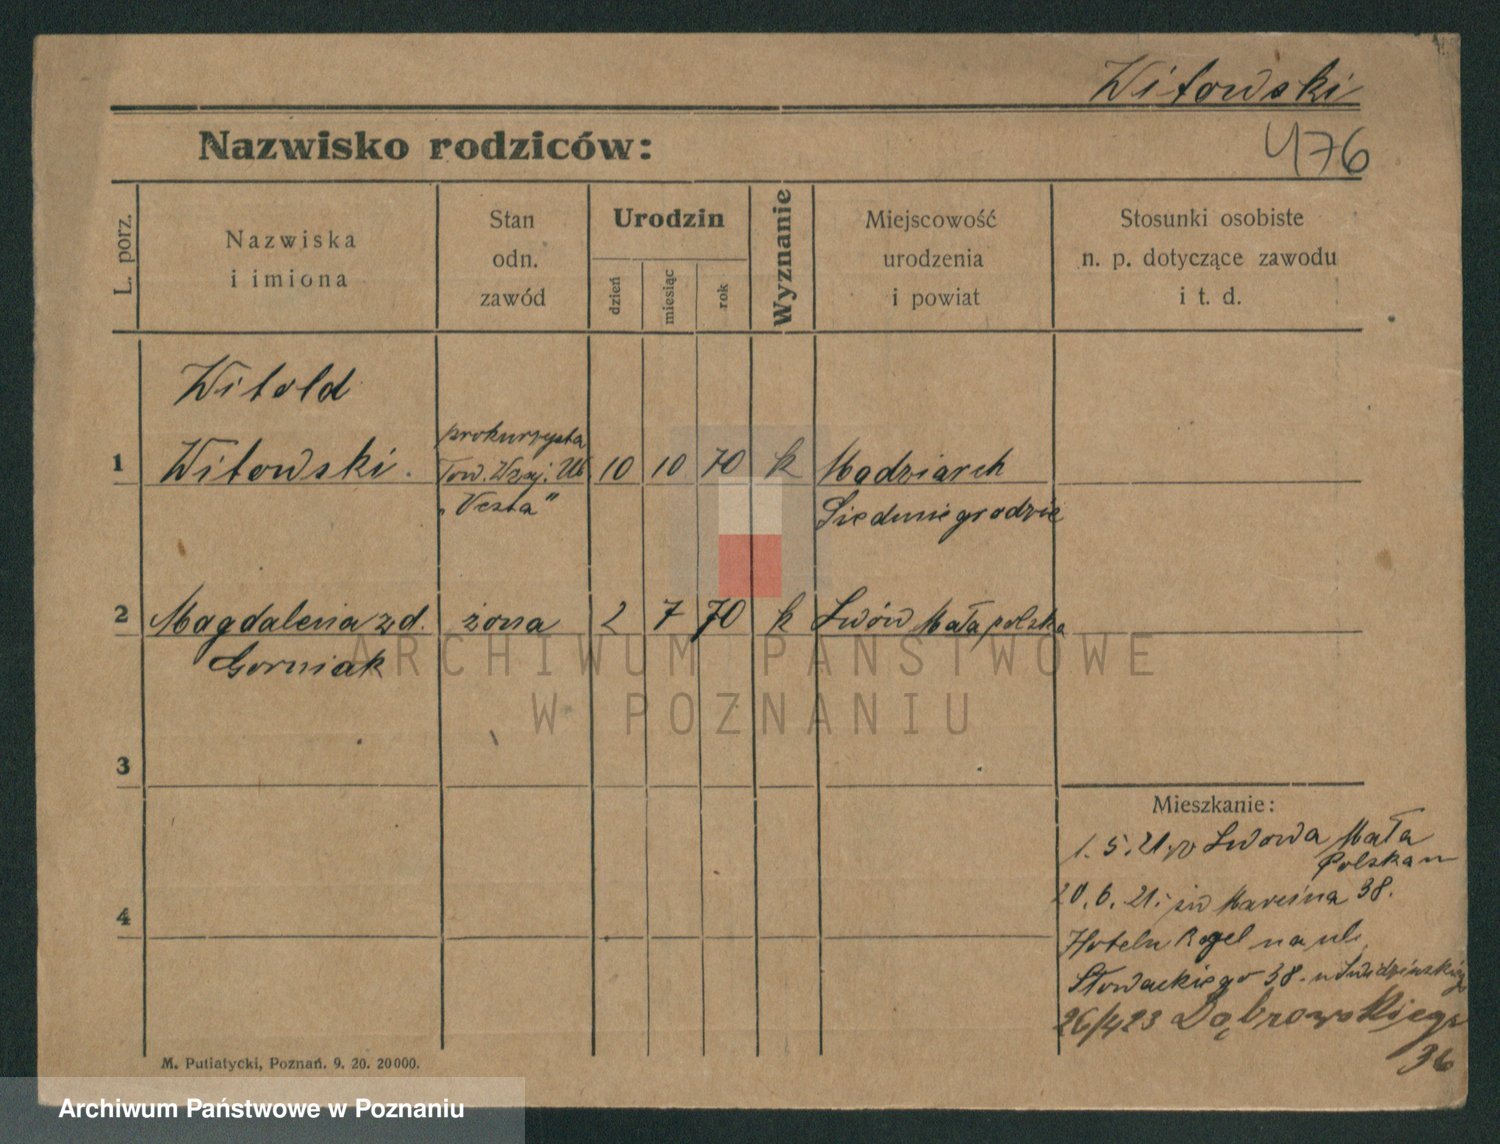 Witowski
Nazwisko rodziców:
476
L. porz.
Nazwiska
i imiona
Stan
odn.
zawód
Urodzin
dzień
miesiąc
rok
Wyznanie
Miejscowość
urodzenia
i powiat
Stosunki osobiste
n. p. dotyczące zawodu
i t. d.
1
Witold
Witowski.
prokurzysta
Tow. Wzaj. Ub.
„Vesta"
10 10 70 k
Madziarch
Siedmiegrodzie
2
Magdalena zd.
Gorniak
żona
2 7 70 k
Lwów Małapolska
3
4
Mieszkanie:
1. 5. 21. Lwowa Mała
Polska
20. 6. 21. św Marcina 38.
Hotelu na ul.
Słowackiego 38. u
26/4 23 Dąbrowskiego
36
M. Putiatycki, Poznań. 9. 20. 20000.
ARCHIWUM PAŃSTWOWE
W POZNANIU
Archiwum Państwowe w Poznaniu